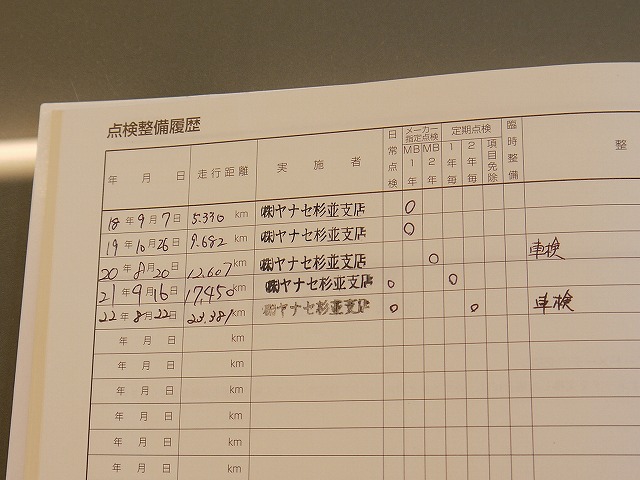 点検整備履歴
年 月 日 走行距離 実施者 日常点検 メーカー指定点検 MB1年 MB2年 定期点検 1年毎 2年毎 項目免除 臨時整備 整
18年9月7日 5.330km ㈱ヤナセ杉並支店 ○
19年10月26日 9.682km ㈱ヤナセ杉並支店 ○
20年8月20日 12.607km ㈱ヤナセ杉並支店 ○ 車検
21年9月16日 17,450km ㈱ヤナセ杉並支店 ○ ○
22年8月22日 23.381km ㈱ヤナセ杉並支店 ○ ○ 車検
年 月 日 km
年 月 日 km
年 月 日 km
年 月 日 km
年 月 日 km
年 月 日 km